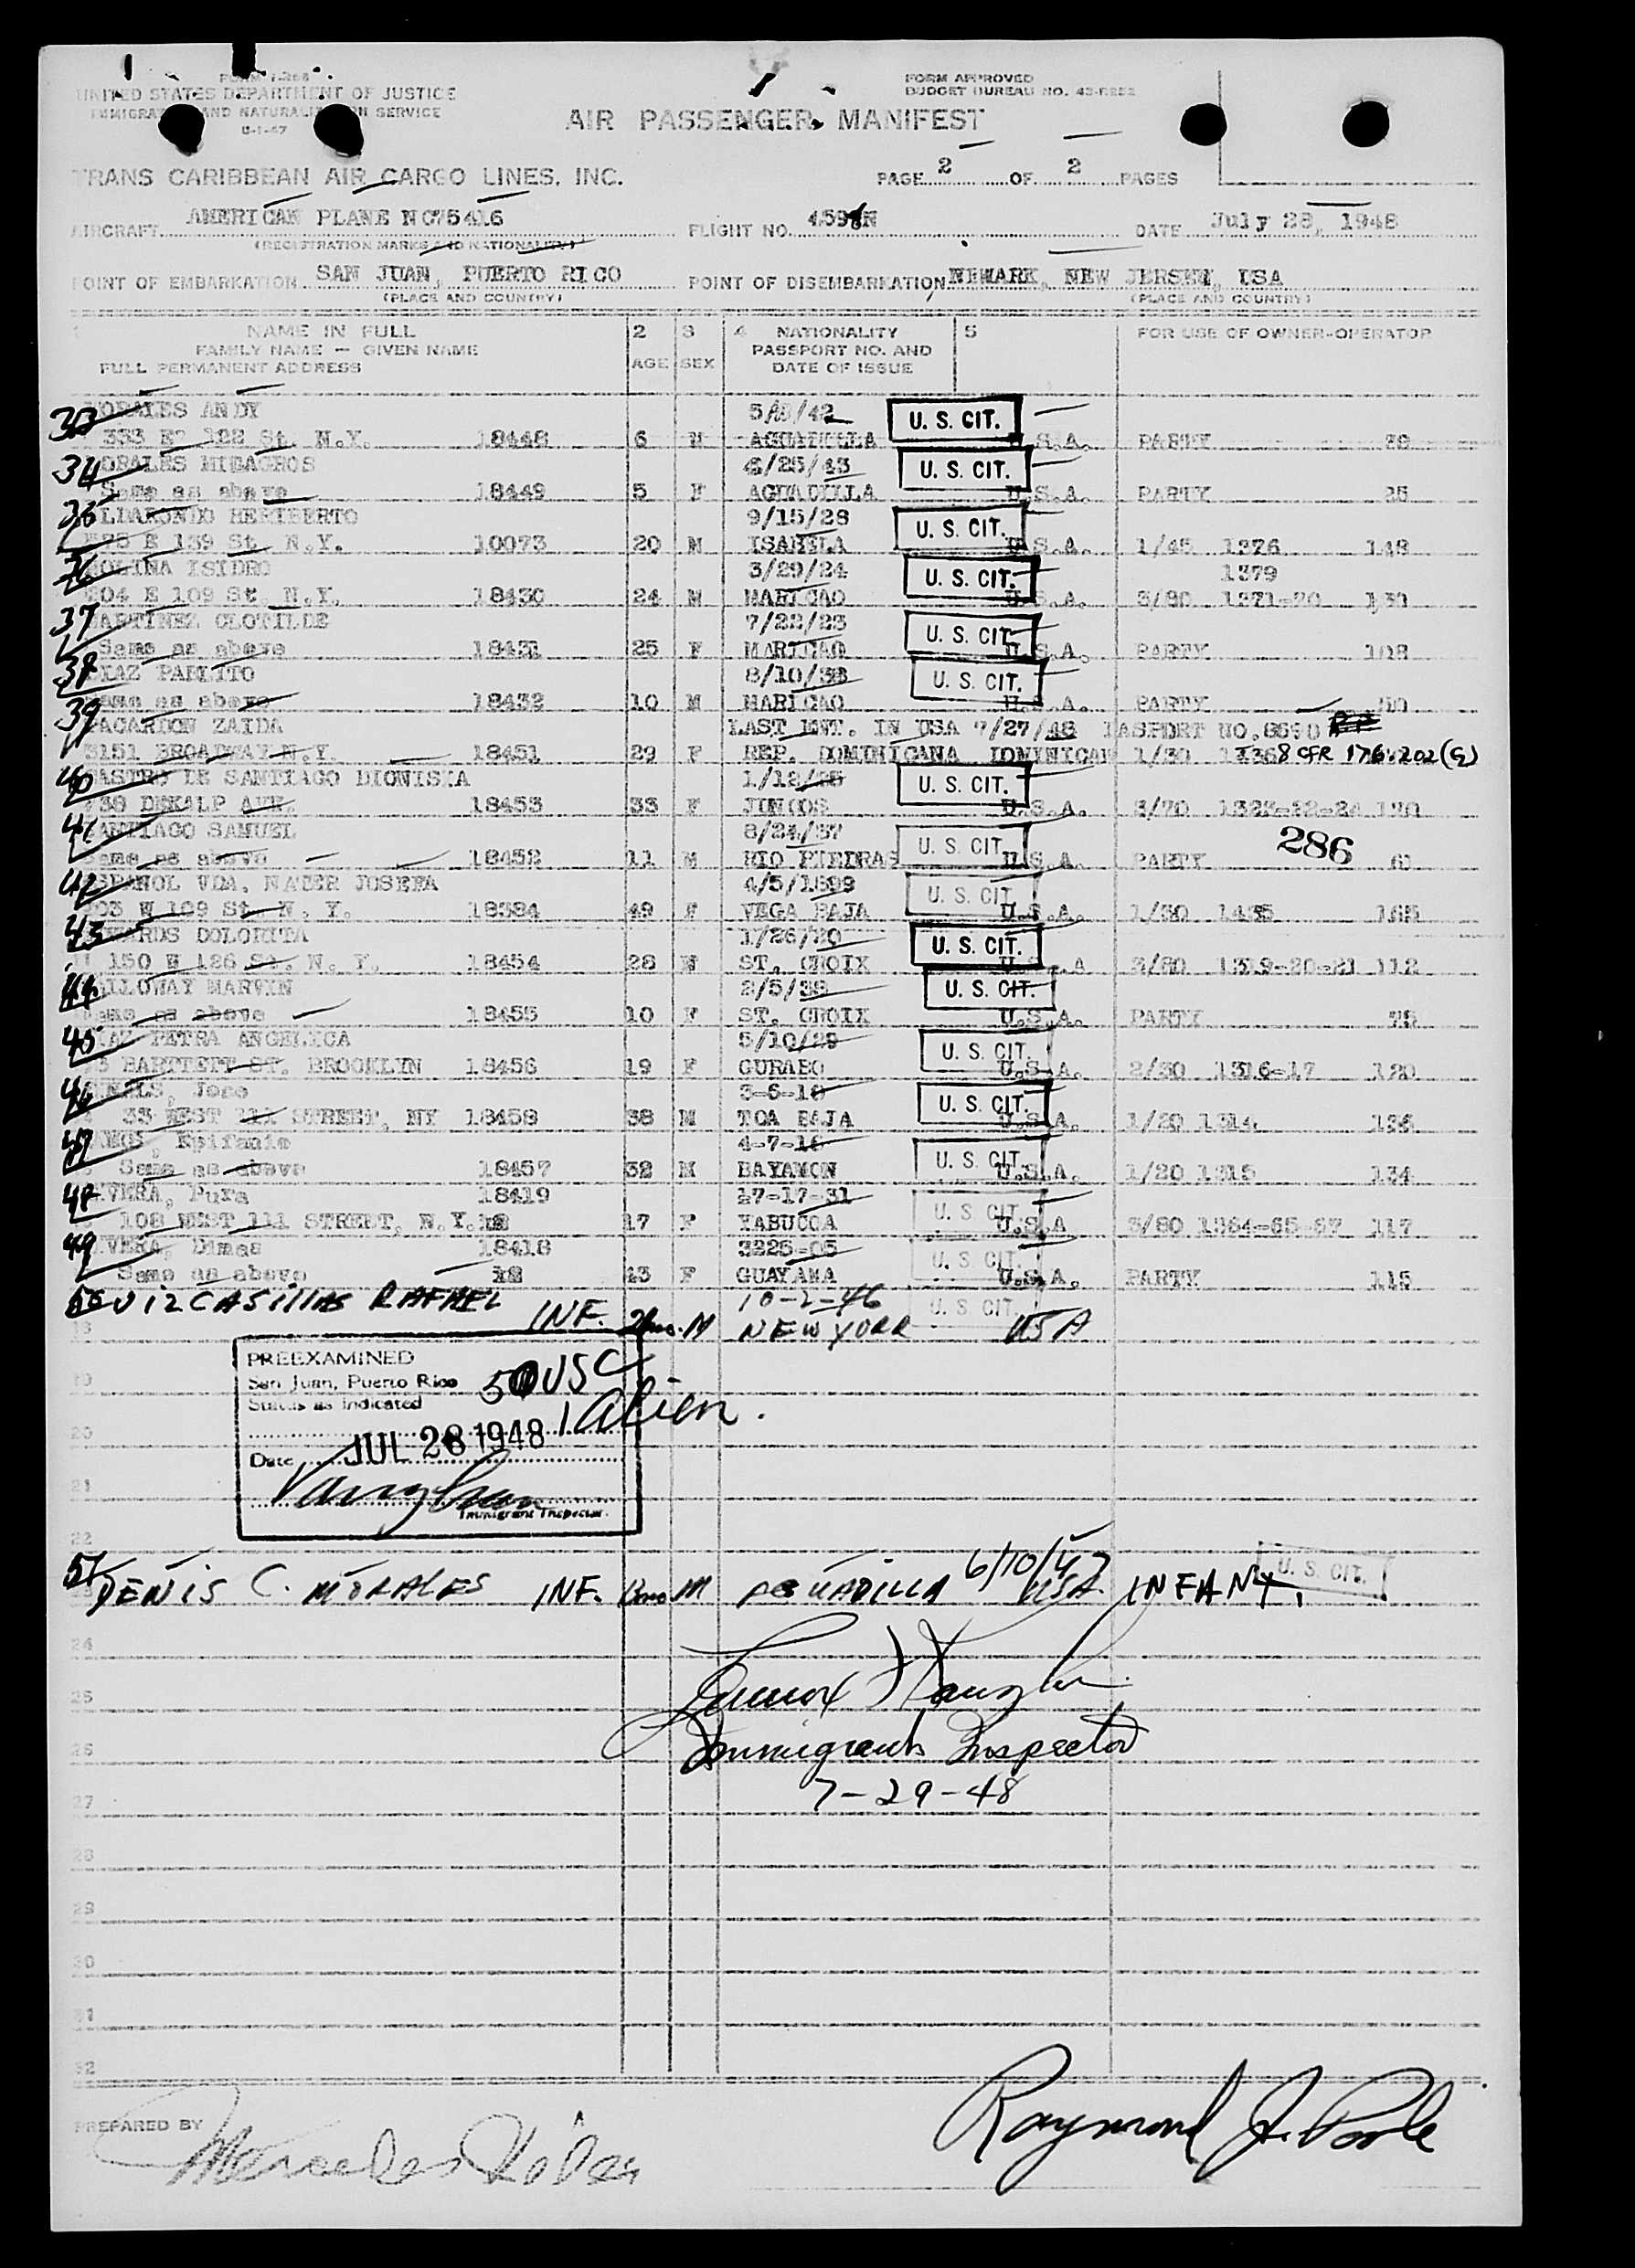 FORM I-268
UNITED STATES DEPARTMENT OF JUSTICE
IMMIGRATION AND NATURALIZATION SERVICE
FORM APPROVED
BUDGET BUREAU NO.
AIR PASSENGER MANIFEST
TRANS CARIBBEAN AIR CARGO LINES, INC.
PAGE 2 OF 2 PAGES
AIRCRAFT AMERICAN PLANE NC75416
(REGISTRATION MARKS AND NATIONALITY)
FLIGHT NO.
DATE July 28, 1948
POINT OF EMBARKATION SAN JUAN, PUERTO RICO
(PLACE AND COUNTRY)
POINT OF DISEMBARKATION NEWARK, NEW JERSEY, USA
(PLACE AND COUNTRY)
1 NAME IN FULL
FAMILY NAME — GIVEN NAME
FULL PERMANENT ADDRESS
2 AGE
3 SEX
4 NATIONALITY
PASSPORT NO. AND
DATE OF ISSUE
5
FOR USE OF OWNER-OPERATOR
33 MORALES ANDY 42 U. S. CIT.
333 E 122 St. N.Y. 18448 6 M AGUADILLA U.S.A. PARTY
34 MORALES MILAGROS 25/43 U. S. CIT.
Same as above 18449 5 F AGUADILLA U.S.A. PARTY 25
HERIBERTO 9/15/28 U. S. CIT.
E 139 St N.Y. 10073 20 M ISABELA U.S.A. 1/45 1376 149
MOLINA ISIDRO 3/29/24 U. S. CIT. 1379
204 E 109 St. N.Y. 18430 24 M MARICAO U.S.A. 3/80 1371-20
37 MARTINEZ CLOTILDE 7/22/23 U. S. CIT.
Same as above 18431 25 F MARICAO U.S.A. PARTY 108
38 DIAZ PABLITO 8/10/38 U. S. CIT.
Same as above 18432 10 M MARICAO U.S.A. PARTY 50
39 ZAIDA LAST ENT. IN USA 7/27/48 PASPORT NO. 8690
3151 BROADWAY N.Y. 18451 29 F REP. DOMINICANA DOMINICAN 1/30 8 CFR 176.202(G)
40 CASTRO DE SANTIAGO DIONISIA 1/12/ U. S. CIT.
DEKALP AVE. 18453 33 F JUNCOS U.S.A. 1323-22-24 170
41 SANTIAGO SAMUEL 8/24/37 U. S. CIT. 286
Same as above 18452 11 M RIO PIEDRAS U.S.A. PARTY 61
42 ESPANOL VDA. NATER JOSEFA 4/5/1899 U. S. CIT.
W 109 St. N. Y. 18384 49 F VEGA BAJA U.S.A. 1/30 165
43 EDWARDS DOLORITA 1/26/20 U. S. CIT.
150 W 126 St. N. Y. 18454 28 ST. CROIX U.S.A 3/80 1319-20-21 112
44 GALLOWAY MARVIN 2/5/38 U. S. CIT.
Same as above 18455 10 F ST. CROIX U.S.A. PARTY 75
45 DIAZ PETRA ANGELICA 5/10/29 U. S. CIT.
BARTTETT ST. BROOKLYN 18456 19 F GURABO U.S.A. 2/30 1316-17 120
46 Jose 3-6-10 U. S. CIT.
33 WEST 111 STREET, NY 18458 38 M TOA BAJA U.S.A. 1/20 1314 136
47 Epifanio 4-7-16 U. S. CIT.
Same as above 18457 32 M BAYAMON U.S.A. 1/20 1315 134
48 RIVERA, Pura 18419 17-17-31 U. S. CIT.
108 WEST 111 STREET, N.Y. 17 F YABUCOA U.S.A 3/80 1364-65-67 117
49 RIVERA, Dimas 18418 3225-05 U. S. CIT.
Same as above 43 F GUAYAMA U.S.A. PARTY 115
50 RUIZ CASILLAS RAFAEL 10-2-46 U. S. CIT.
INF. M NEW YORK USA
PREEXAMINED
San Juan, Puerto Rico 50 USC
Status as indicated 1 Alien.
Date JUL 28 1948
Vaughan
Immigrant Inspector.
51 6/10/47 U. S. CIT.
DENIS C. MORALES INF. M AGUADILLA USA. INFANT.
24
25
Immigrant Inspector
26
7-29-48
27
28
29
30
31
32
PREPARED BY
Mercedes
Raymond J. Poole